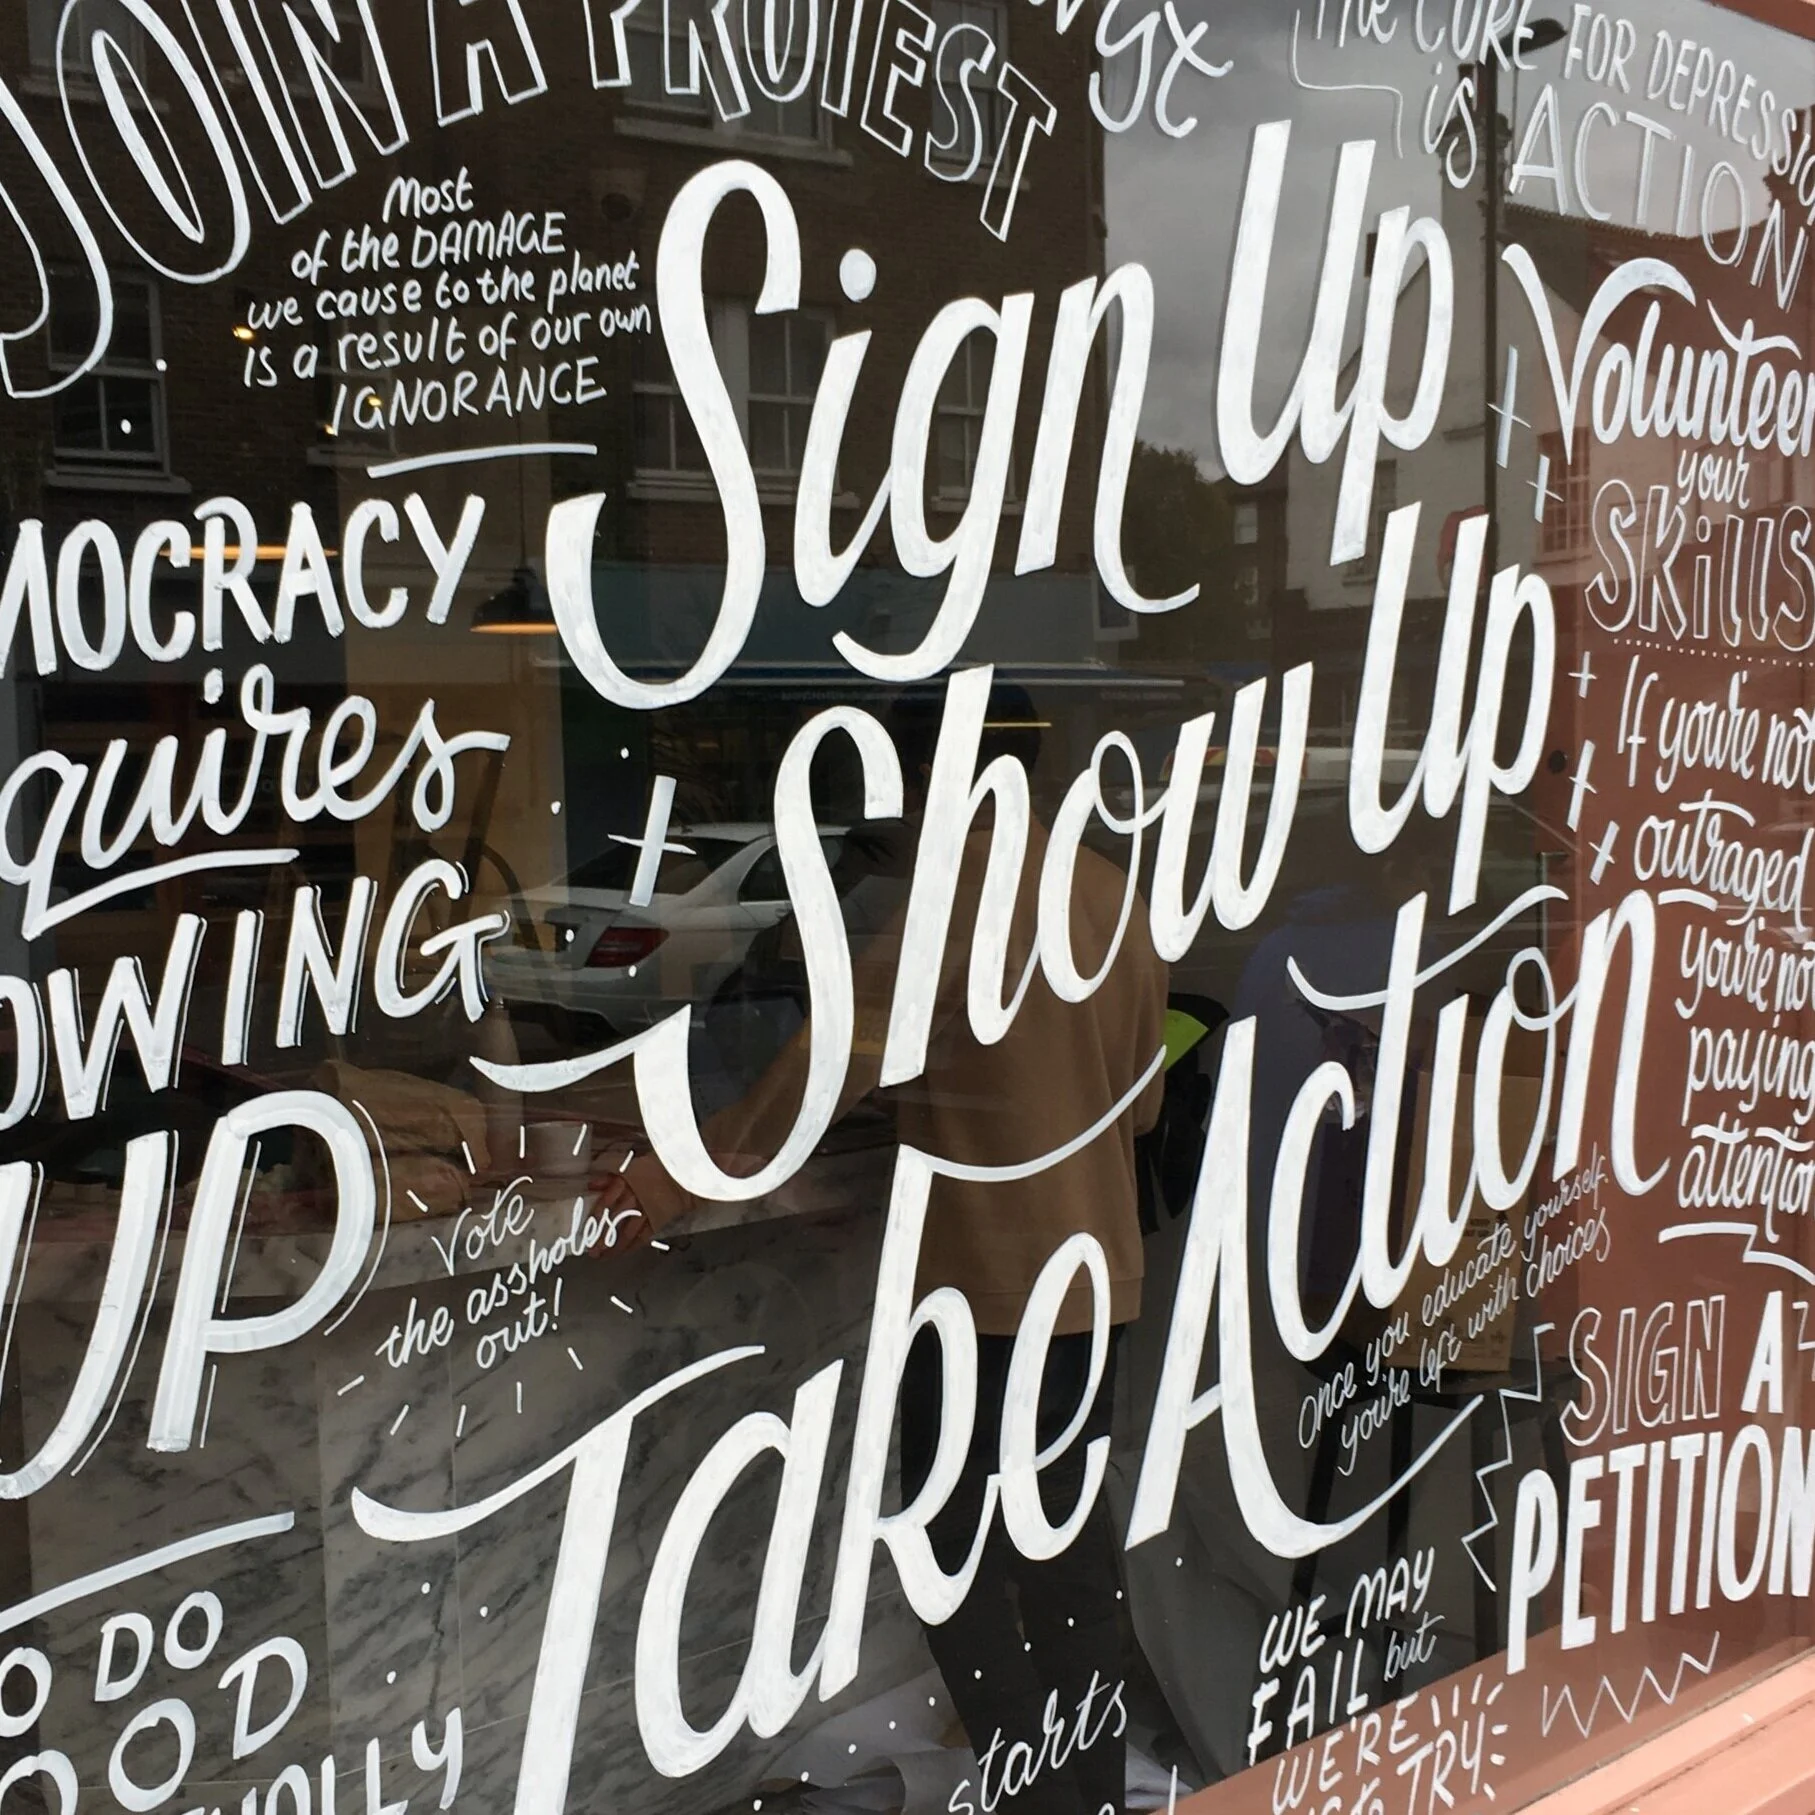 JOIN A PROTEST
The CURE FOR DEPRESSIO
is ACTION
Most
of the DAMAGE
we cause to the planet
is a result of our own
IGNORANCE
Sign Up
Show Up
Take Action
MOCRACY
quires
OWING
UP
Vote
the assholes
out!
O DO
OOD
LLY
Volunteer
your
SKillS
If you're not
outraged
you're not
paying
attention
Once you educate yourself.
you're left with choices
SIGN A
PETITION
WE MAY
FAIL but
WE'RE
TRY
starts